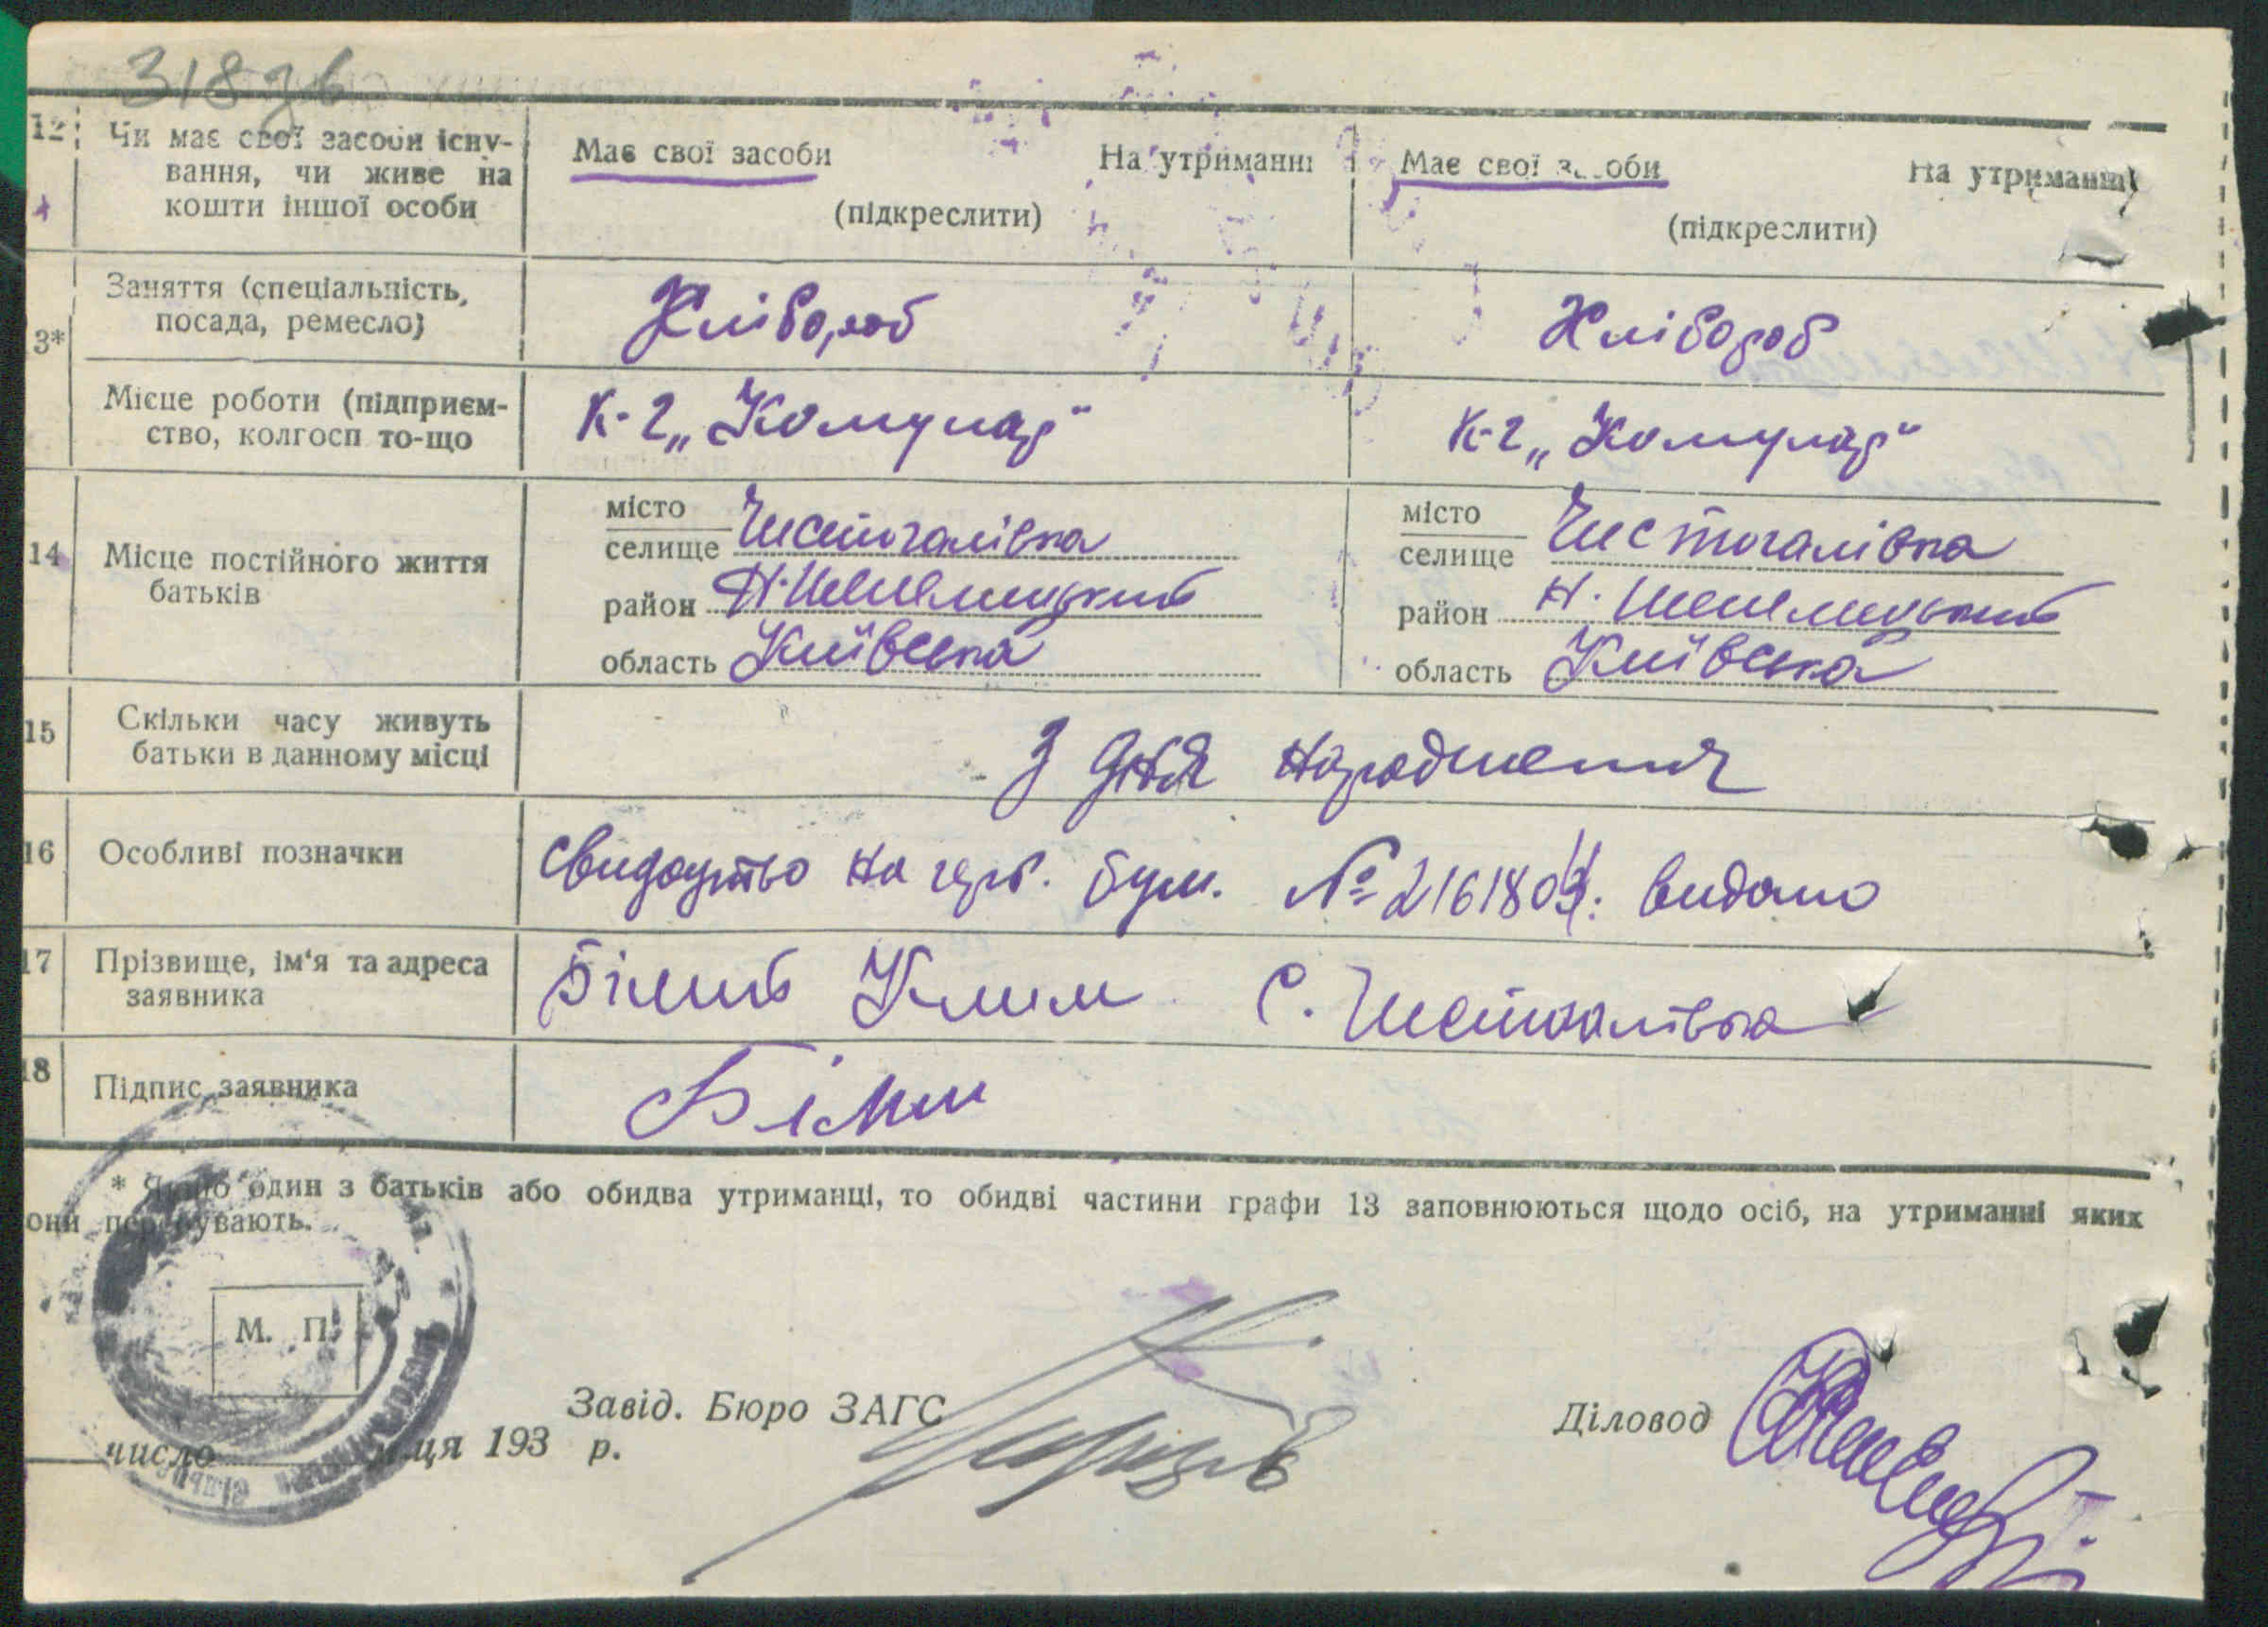 318зв
12 Чи має свої засоби існу-
вання, чи живе на
кошти іншої особи
Має свої засоби На утриманні
(підкреслити)
Має свої засоби На утриманні
(підкреслити)
Заняття (спеціальність,
посада, ремесло)
Хлібороб
Хлібороб
3*
Місце роботи (підприєм-
ство, колгосп то-що
К-г „Комунар"
К-г „Комунар"
14 Місце постійного життя
батьків
місто
селище Чистогалівка
район Н. Шепелицький
область Київська
місто
селище Чистогалівка
район Н. Шепелицький
область Київська
15 Скільки часу живуть
батьки в данному місці
З дня народження
16 Особливі позначки
на герб. бум. № видано
17 Прізвище, ім'я та адреса
заявника
Білий Клим С. Чистогалівка
18 Підпис заявника
Білий
* Якщо один з батьків або обидва утриманці, то обидві частини графи 13 заповнюються щодо осіб, на утриманні яких
они перебувають.
М. П.
Завід. Бюро ЗАГС
Діловод
число м-ця 193 р.